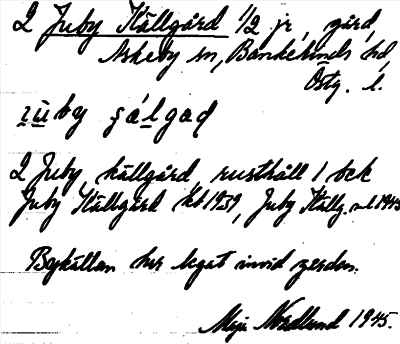 2 Juby Källgård 1/2 jr, gård,
Askeby sn, Bankekinds hd,
Östg. l.
zùby gálgad
2 Juby källgård, rusthåll 1 bck
Juby Källgård kb 1939, Juby Källg. ml 1945
Bykällan har legat invid gården.
Maja Nordlund 1945.